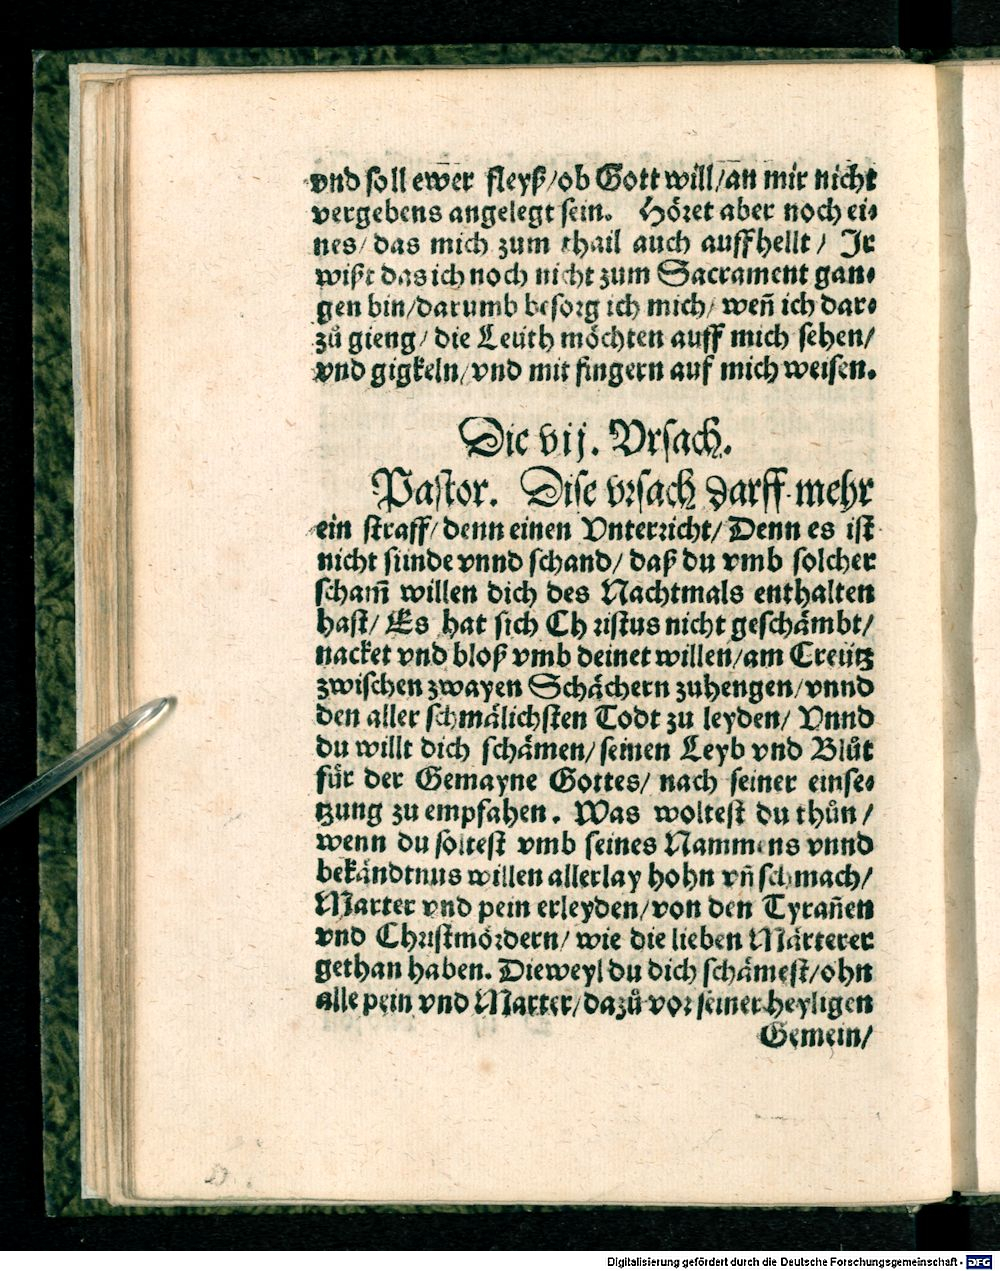 vnd soll ewer fleyß/ob Gott will/an mir nicht
vergebens angelegt sein. Höret aber noch ei⸗
nes/ das mich zum thail auch auffhellt/ Ir
wißt das ich noch nicht zum Sacrament gan⸗
gen bin/darumb besorg ich mich/ weñ ich dar⸗
zů gieng/ die Leuth möchten auff mich sehen/
vnd gigkeln/vnd mit fingern auf mich weisen.
Die vij. Vrsach.
Pastor. Dise vrsach darff mehr
ein straff/denn einen Vnterricht/ Denn es ist
nicht sünde vnnd schand/ daß du vmb solcher
scham̄ willen dich des Nachtmals enthalten
hast/ Es hat sich Christus nicht geschämbt/
nacket vnd bloß vmb deinet willen/am Creütz
zwischen zwayen Schächern zuhengen/vnnd
den aller schmälichsten Todt zu leyden/ Vnnd
du willt dich schämen/seinen Leyb vnd Blůt
für der Gemayne Gottes/ nach seiner einse⸗
tzung zu empfahen. Was woltest du thůn/
wenn du soltest vmb seines Nammens vnnd
bekändtnus willen allerlay hohn vñ schmach/
Marter vnd pein erleyden/von den Tyrañen
vnd Christmördern/ wie die lieben Märterer
gethan haben. Dieweyl du dich schämest/ohn
alle pein vnd Marter/dazů vor seiner heyligen
Gemein/
Digitalisierung gefördert durch die Deutsche Forschungsgemeinschaft - DFG